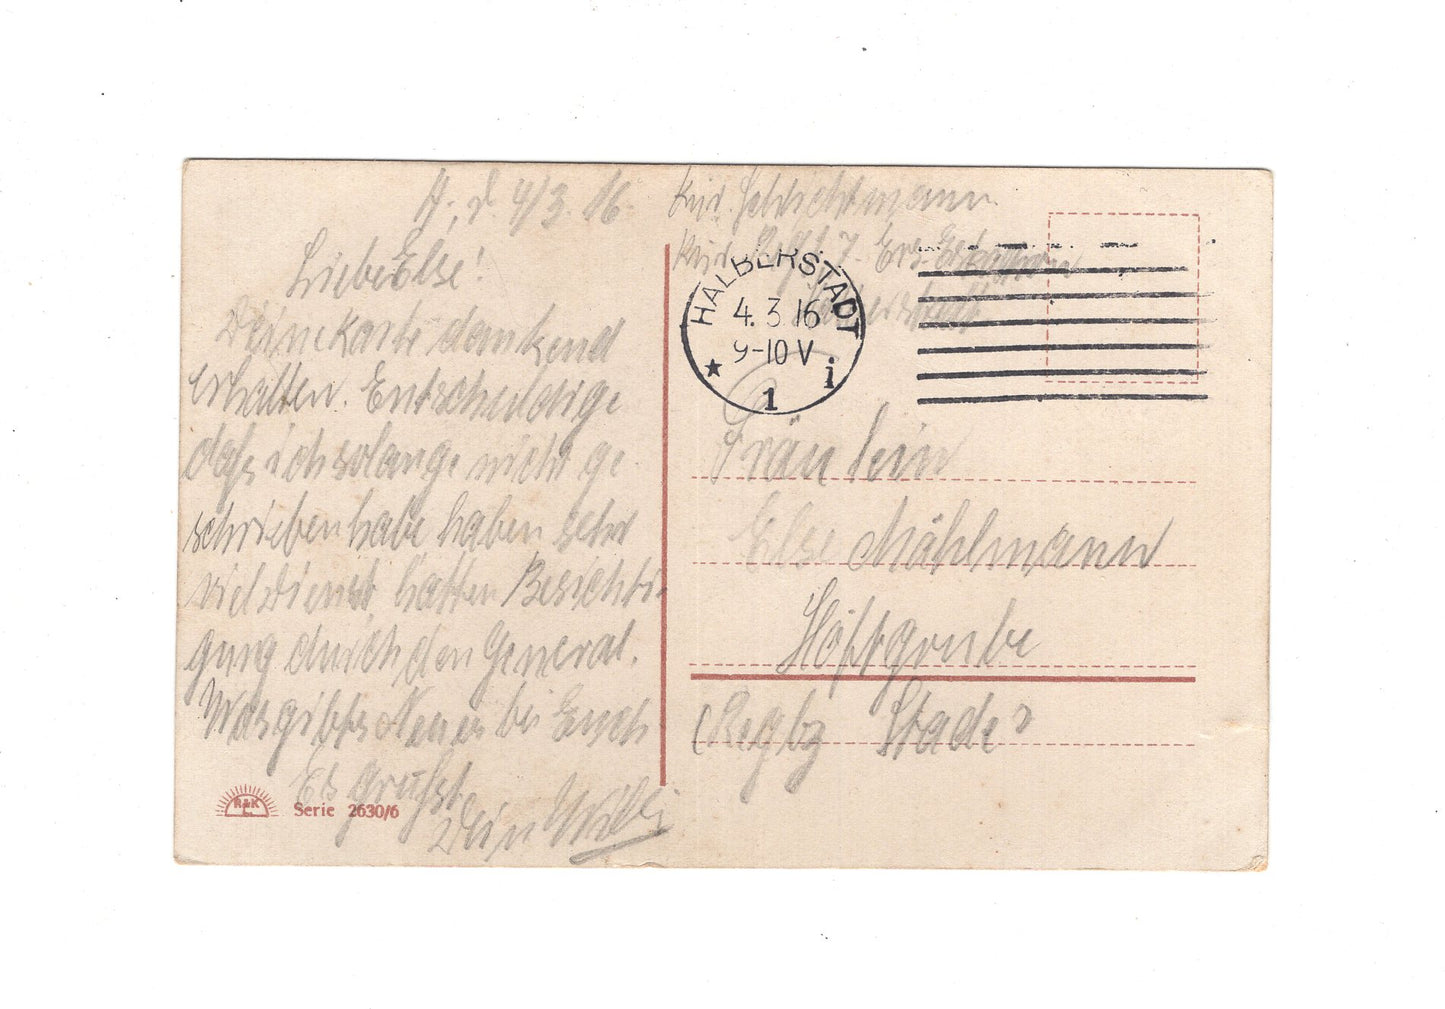 H., d. 4/3. 16.
Liebe Else!
Deine Karte dankend
erhalten. Entschuldige
daß ich solange nicht ge
schrieben habe haben sehr
viel Dienst, hatten Besichti-
gung durch den General.
Was gibts Neues bei Euch
Es grüßt
Dein Willi
R&K
Serie 2630/6
Kür. Schlichtmann
Kür. Regt. 7. Ers. Eskadron
Halberstadt
HALBERSTADT
4.3.16
9-10 V
* 1 i
Fräulein
Else Mählmann
Höftgrube
(Regbz Stade)